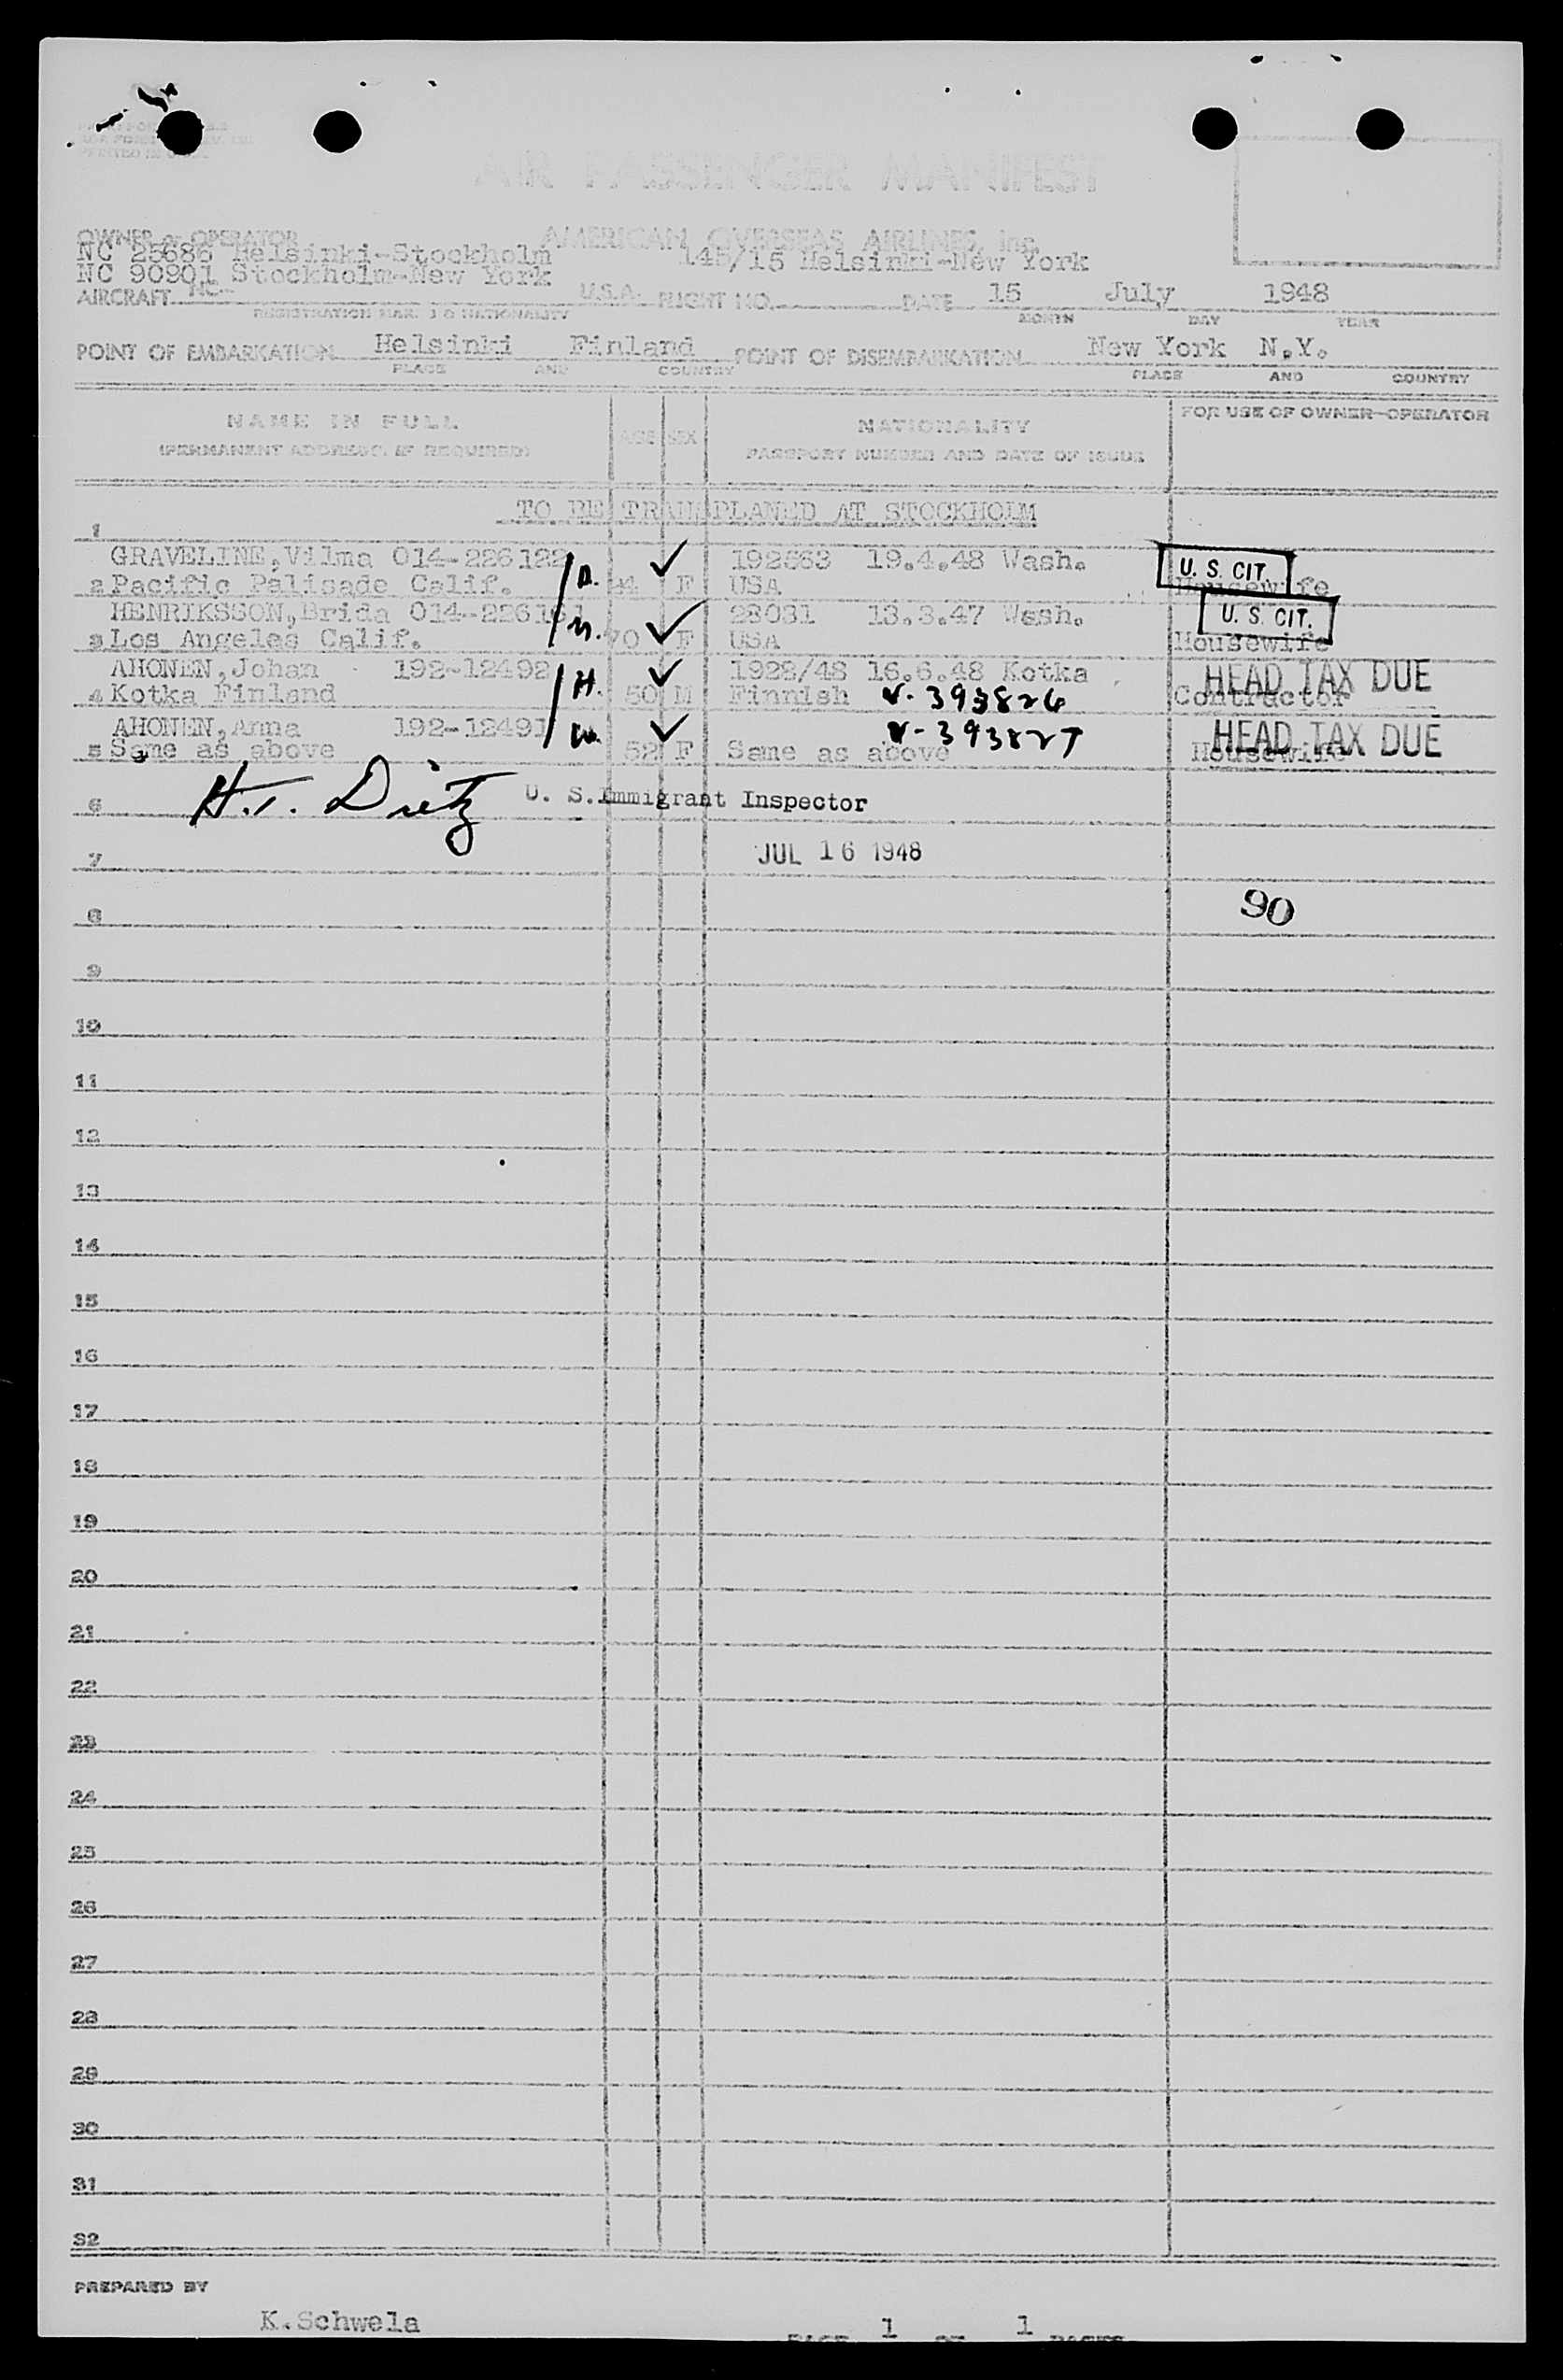 AIR PASSENGER MANIFEST
OWNER or OPERATOR AMERICAN OVERSEAS AIRLINES, Inc.
NC 25686 Helsinki-Stockholm 145/15 Helsinki-New York
NC 90901 Stockholm-New York
AIRCRAFT NC- U.S.A. FLIGHT NO. DATE 15 July 1948
REGISTRATION MARKS & NATIONALITY MONTH DAY YEAR
POINT OF EMBARKATION Helsinki Finland POINT OF DISEMBARKATION New York N.Y.
PLACE AND COUNTRY PLACE AND COUNTRY
NAME IN FULL AGE SEX NATIONALITY FOR USE OF OWNER-OPERATOR
(PERMANENT ADDRESS, IF REQUIRED) PASSPORT NUMBER AND DATE OF ISSUE
TO BE TRANSPLANED AT STOCKHOLM
1
GRAVELINE,Vilma 014-226122 19.4.48 Wash. U. S. CIT.
2 Pacific Palisade Calif. F USA Housewife
HENRIKSSON,Brida 014-226161 N. 28031 13.3.47 Wash. U. S. CIT.
3 Los Angeles Calif. 70 F USA Housewife
AHONEN,Johan 192-12492 H. 1928/48 16.6.48 Kotka HEAD TAX DUE
4 Kotka Finland 50 M Finnish V-393826 Contractor
AHONEN,Anna 192-12491 W. V-393827 HEAD TAX DUE
5 Same as above 52 F Same as above Housewife
6 H.T. Dietz U. S. Immigrant Inspector
7 JUL 16 1948
8 90
9
10
11
12
13
14
15
16
17
18
19
20
21
22
23
24
25
26
27
28
29
30
31
32
PREPARED BY
K.Schwela
PAGE 1 OF 1 PAGES